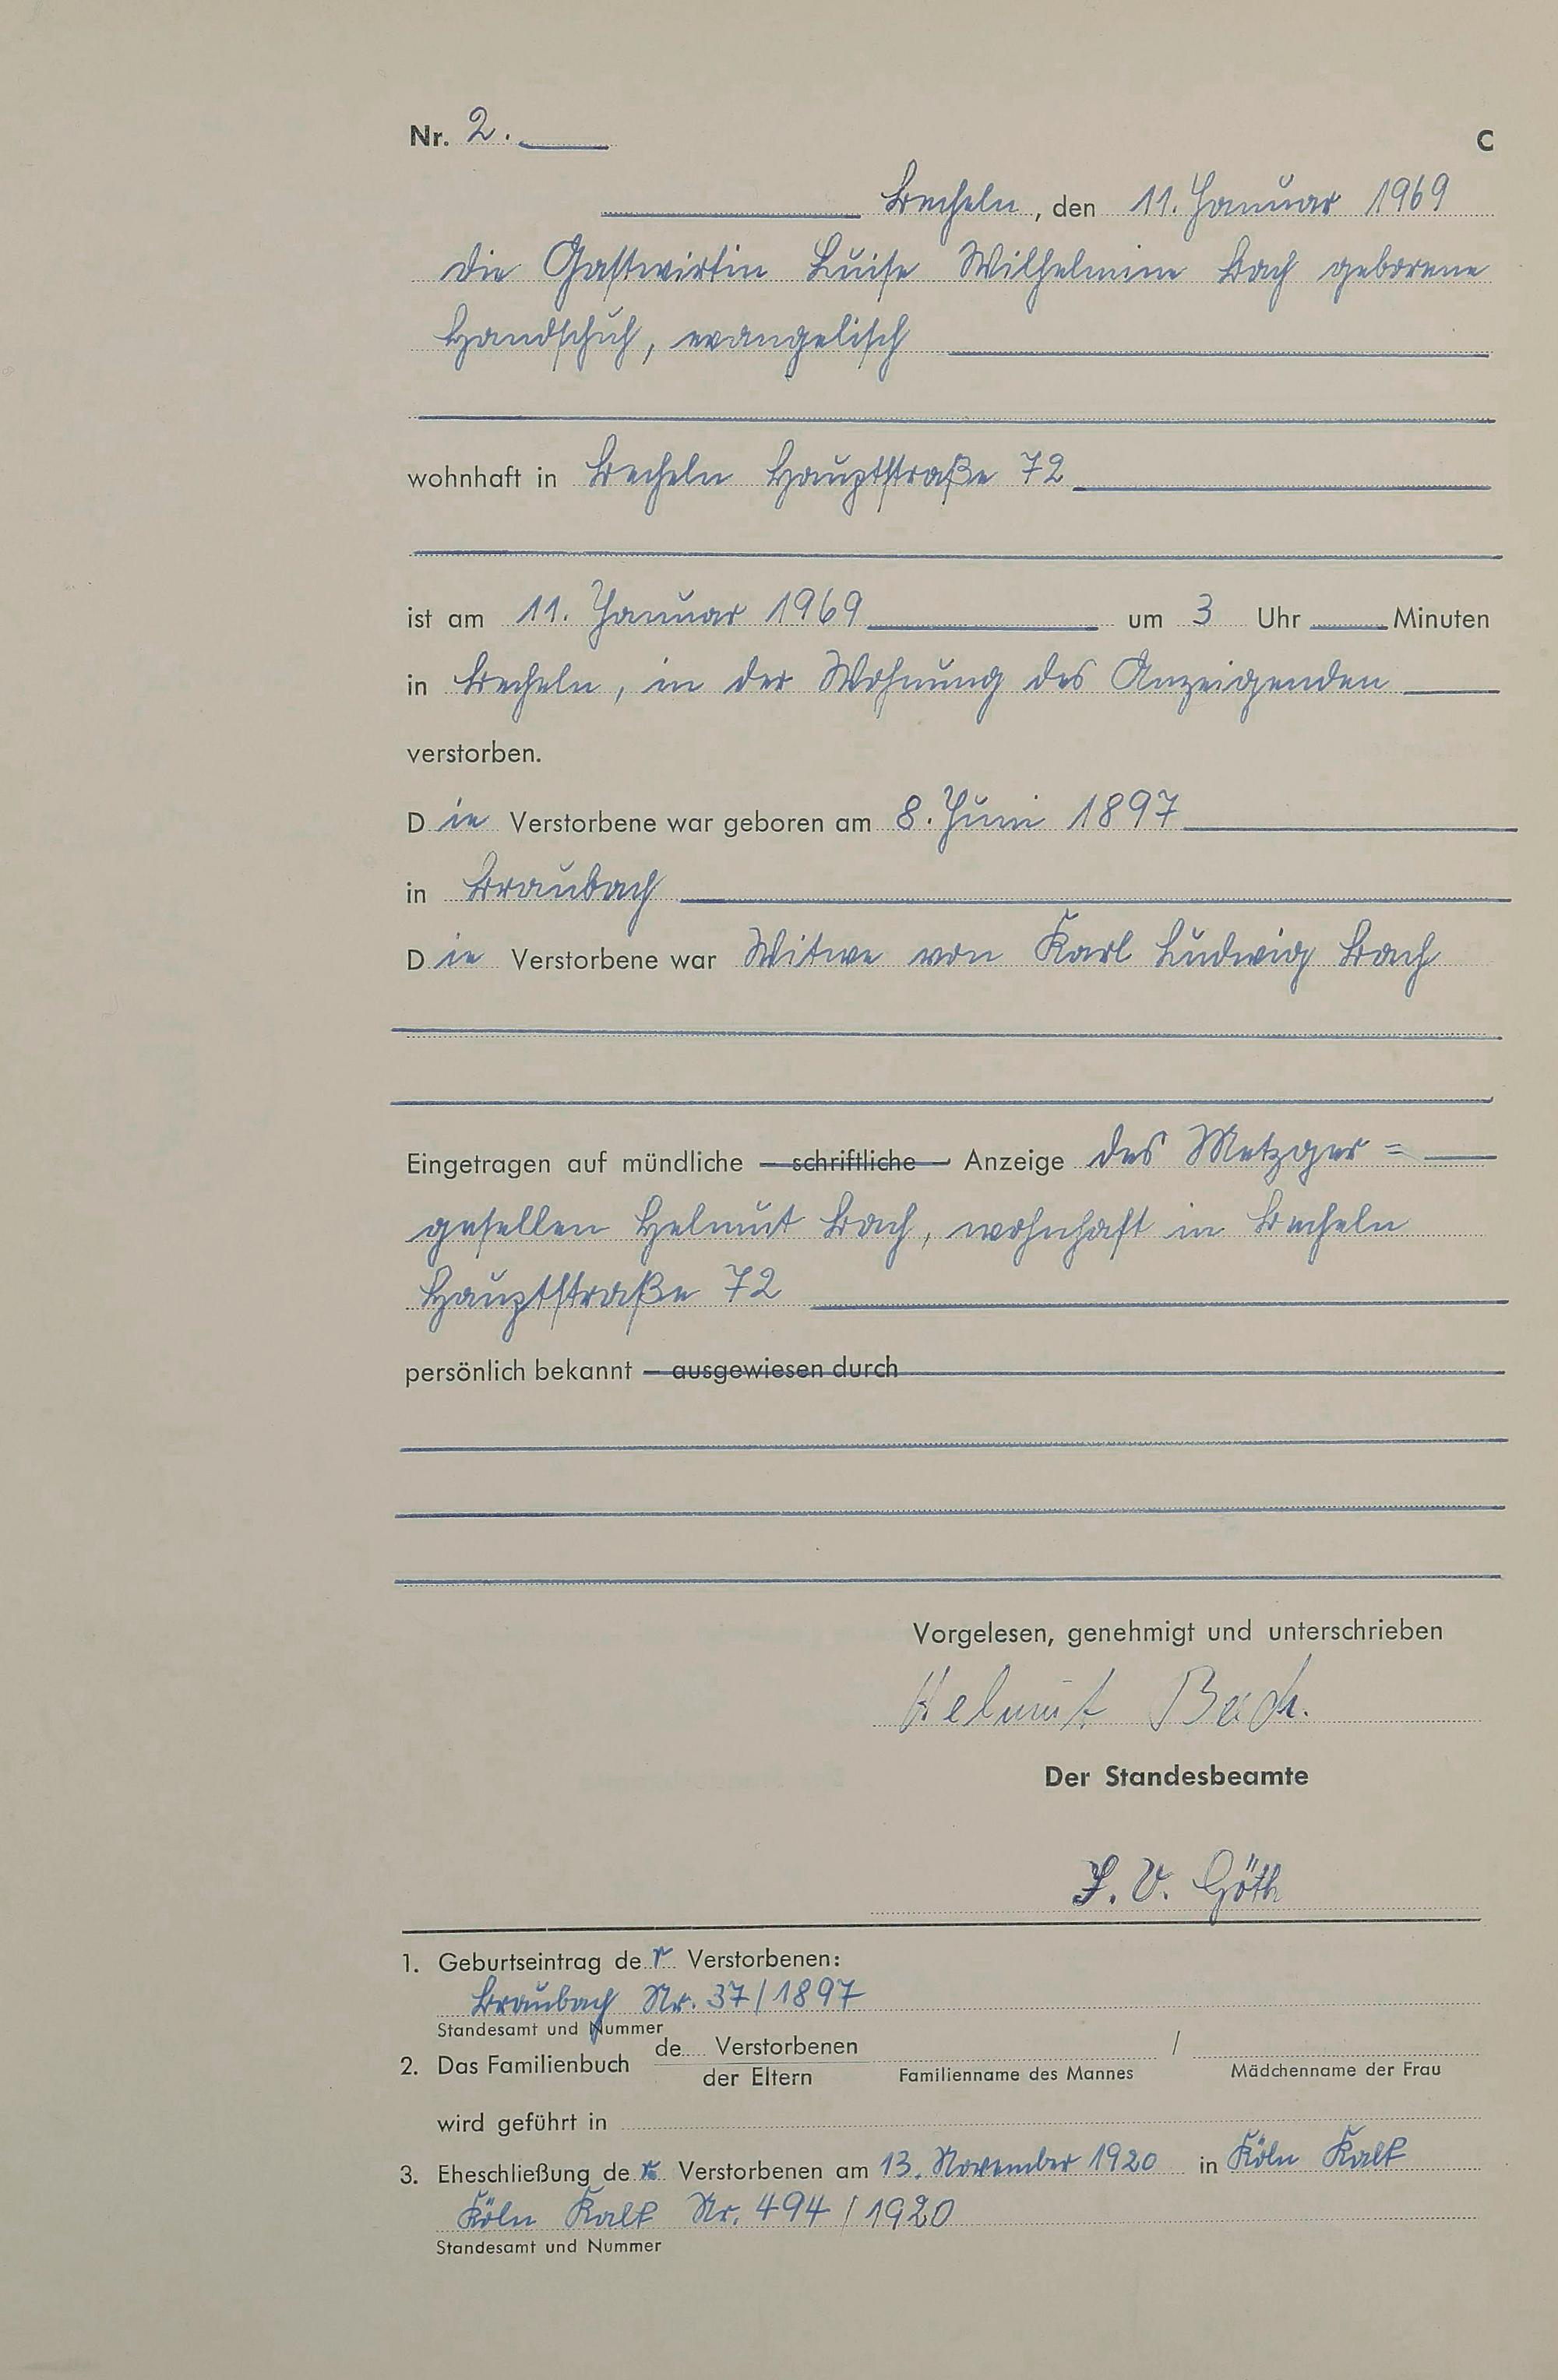 Nr. 2.
C
Becheln, den 11. Januar 1969
die Gastwirtin Luise Wilhelmine Bach geborene
Handschuh, evangelisch
wohnhaft in Becheln Hauptstraße 72
ist am 11. Januar 1969 um 3 Uhr Minuten
in Becheln, in der Wohnung des Anzeigenden
verstorben.
Die Verstorbene war geboren am 8. Juni 1897
in Braubach
Die Verstorbene war Witwe von Karl Ludwig Bach
Eingetragen auf mündliche – schriftliche – Anzeige des Metzger =
gesellen Helmut Bach, wohnhaft in Becheln
Hauptstraße 72
persönlich bekannt – ausgewiesen durch
Vorgelesen, genehmigt und unterschrieben
Helmut Bach.
Der Standesbeamte
I. V. Göth
1. Geburtseintrag der Verstorbenen:
Braubach Nr. 37/1897
Standesamt und Nummer
2. Das Familienbuch de Verstorbenen /
der Eltern Familienname des Mannes Mädchenname der Frau
wird geführt in
3. Eheschließung der Verstorbenen am 13. November 1920 in Köln Kalk
Köln Kalk Nr. 494 / 1920
Standesamt und Nummer